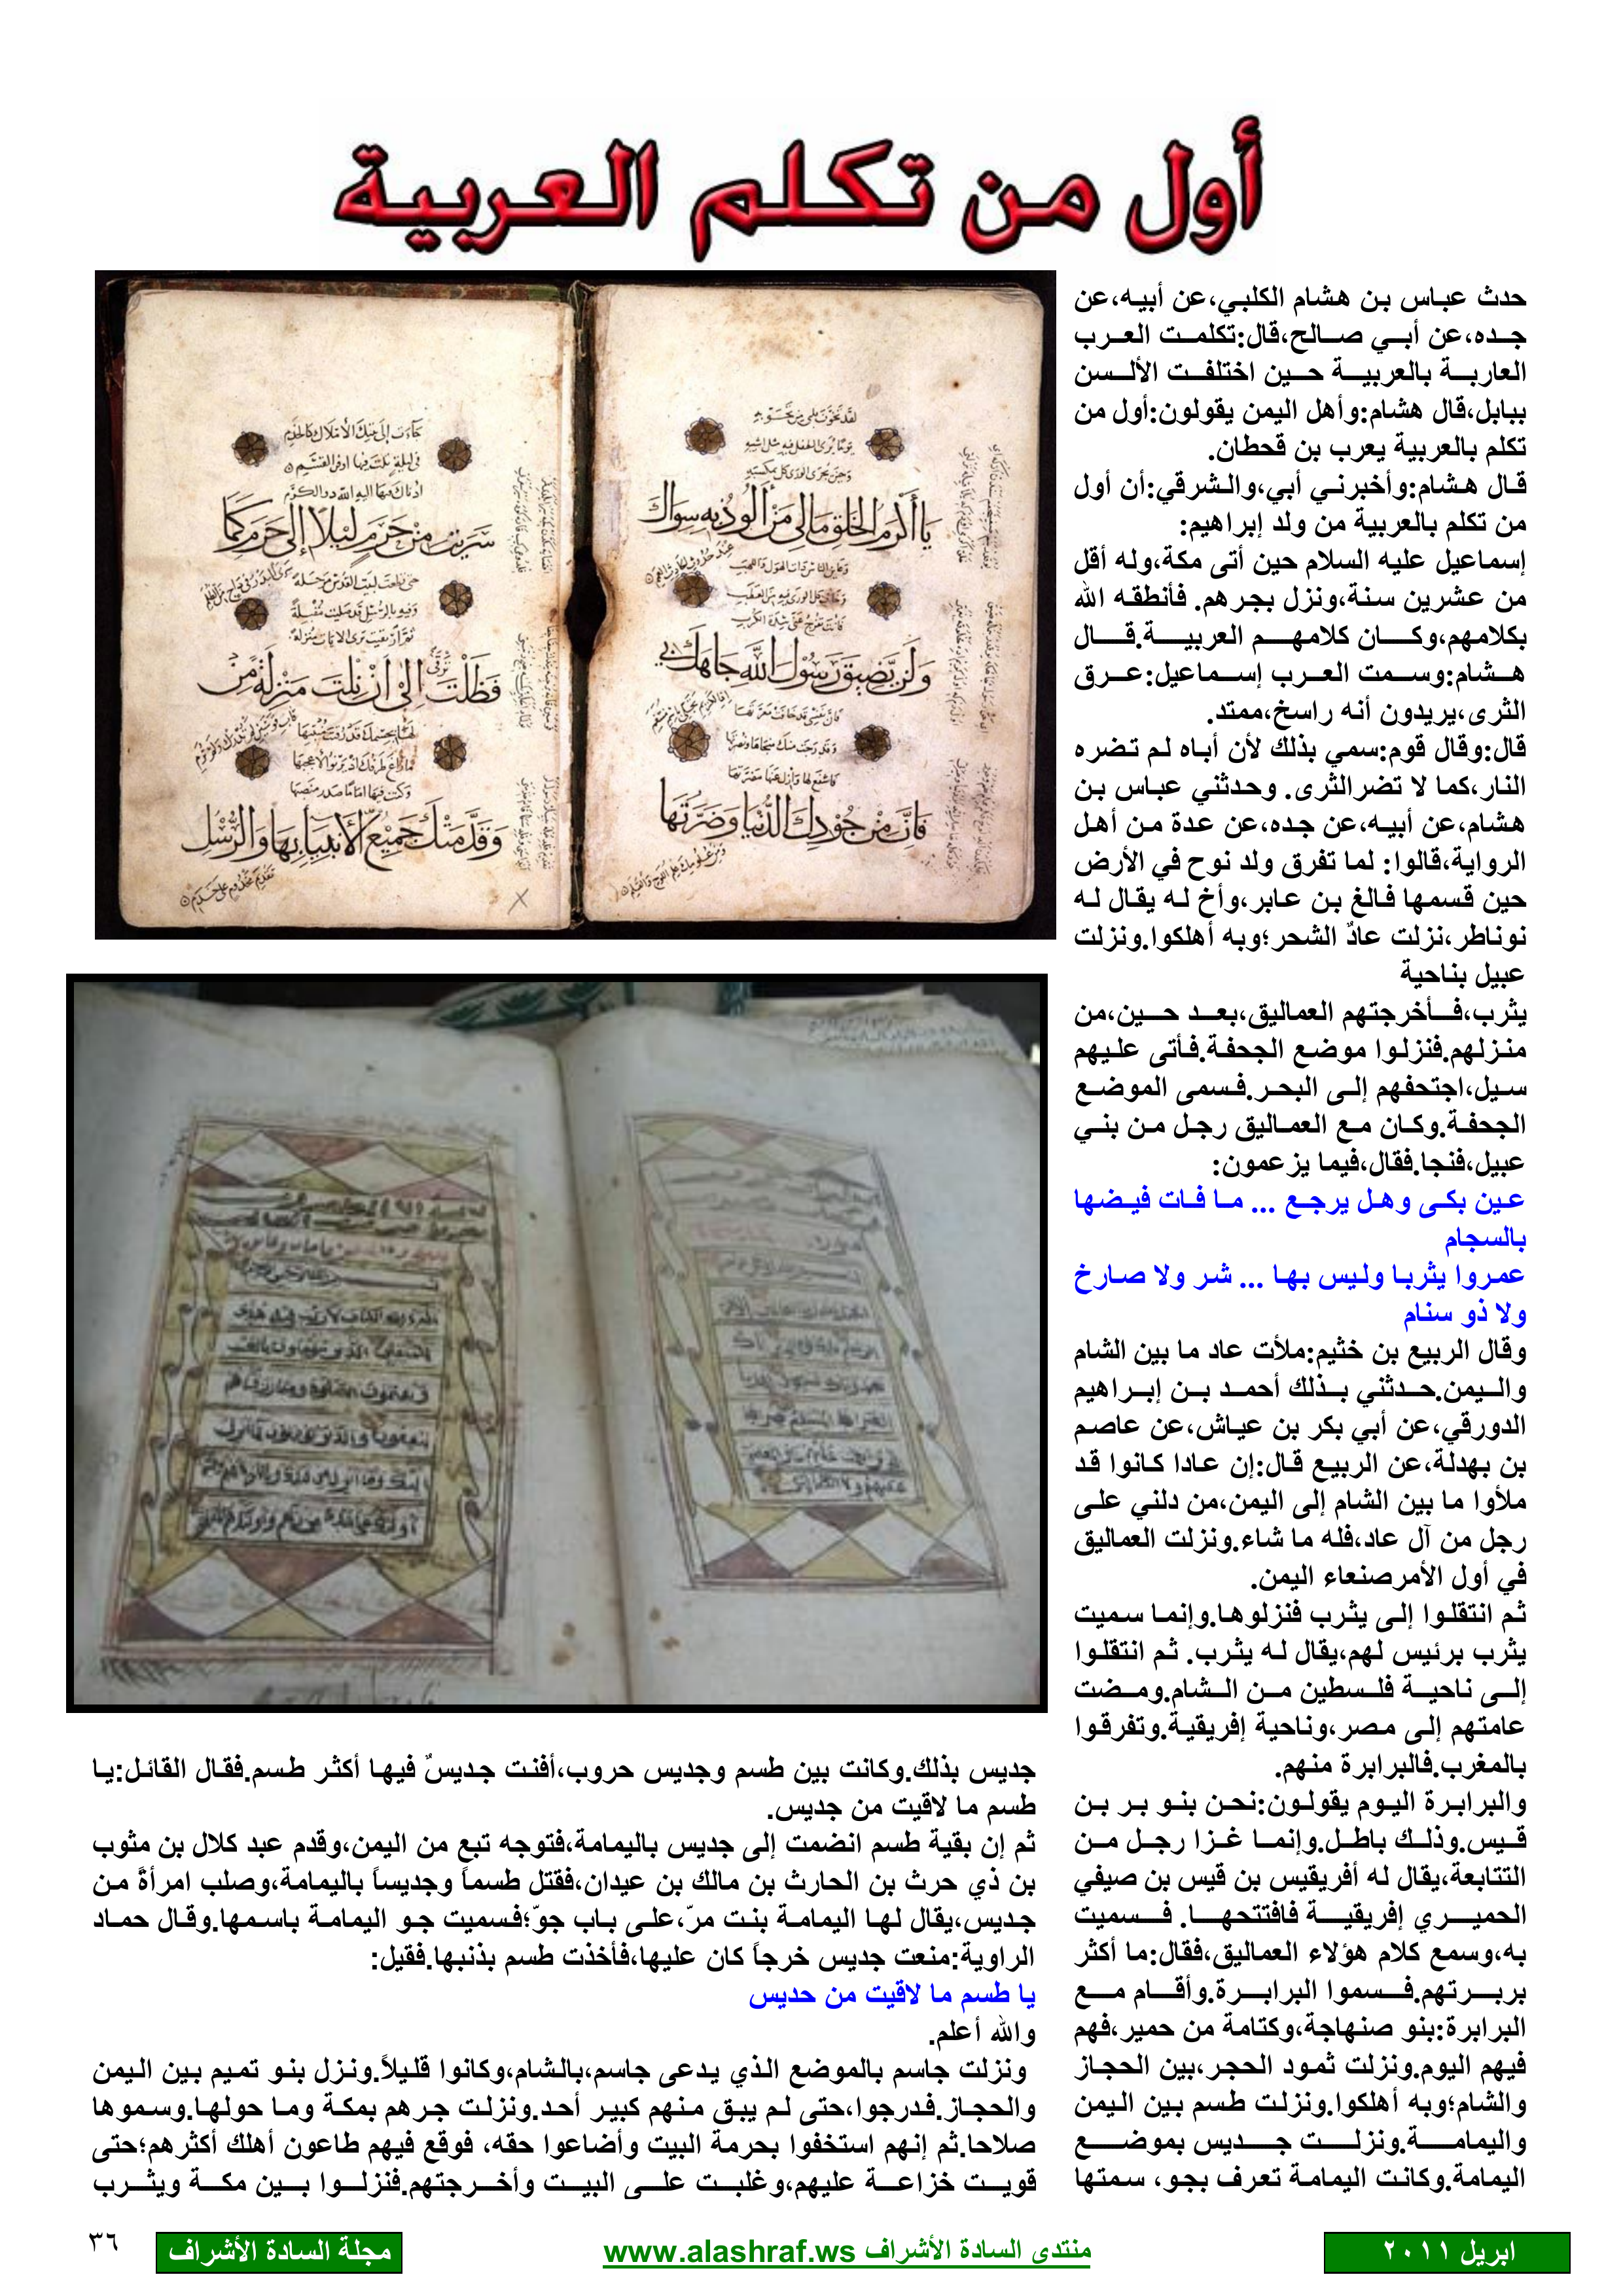 أول من تكلم العربية
حدث عباس بن هشام الكلبي،عن أبيه،عن
جده،عن أبي صالح،قال:تكلمت العرب
العاربة بالعربية حين اختلفت الألسن
ببابل،قال هشام:وأهل اليمن يقولون:أول من
تكلم بالعربية يعرب بن قحطان.
قال هشام:وأخبرني أبي،والشرقي:أن أول
من تكلم بالعربية من ولد إبراهيم:
إسماعيل عليه السلام حين أتى مكة،وله أقل
من عشرين سنة،ونزل بجرهم. فأنطقه الله
بكلامهم،وكان كلامهم العربية.قال
هشام:وسمت العرب إسماعيل:عرق
الثرى،يريدون أنه راسخ،ممتد.
قال:وقال قوم:سمي بذلك لأن أباه لم تضره
النار،كما لا تضرالثرى. وحدثني عباس بن
هشام،عن أبيه،عن جده،عن عدة من أهل
الرواية،قالوا: لما تفرق ولد نوح في الأرض
حين قسمها فالغ بن عابر،وأخ له يقال له
نوناطر،نزلت عادٌ الشحر؛وبه أهلكوا.ونزلت
عبيل بناحية
يثرب،فأخرجتهم العماليق،بعد حين،من
منزلهم.فنزلوا موضع الجحفة.فأتى عليهم
سيل،اجتحفهم إلى البحر.فسمى الموضع
الجحفة.وكان مع العماليق رجل من بني
عبيل،فنجا.فقال،فيما يزعمون:
عين بكى وهل يرجع ... ما فات فيضها
بالسجام
عمروا يثربا وليس بها ... شر ولا صارخ
ولا ذو سنام
وقال الربيع بن خثيم:ملأت عاد ما بين الشام
واليمن.حدثني بذلك أحمد بن إبراهيم
الدورقي،عن أبي بكر بن عياش،عن عاصم
بن بهدلة،عن الربيع قال:إن عادا كانوا قد
ملأوا ما بين الشام إلى اليمن،من دلني على
رجل من آل عاد،فله ما شاء.ونزلت العماليق
في أول الأمرصنعاء اليمن.
ثم انتقلوا إلى يثرب فنزلوها.وإنما سميت
يثرب برئيس لهم،يقال له يثرب. ثم انتقلوا
إلى ناحية فلسطين من الشام.ومضت
عامتهم إلى مصر،وناحية إفريقية.وتفرقوا
بالمغرب.فالبرابرة منهم.
والبرابرة اليوم يقولون:نحن بنو بر بن
قيس.وذلك باطل.وإنما غزا رجل من
التتابعة،يقال له أفريقيس بن قيس بن صيفي
الحميري إفريقية فافتتحها. فسميت
به،وسمع كلام هؤلاء العماليق،فقال:ما أكثر
بربرتهم.فسموا البرابرة.وأقام مع
البرابرة:بنو صنهاجة،وكتامة من حمير،فهم
فيهم اليوم.ونزلت ثمود الحجر،بين الحجاز
والشام؛وبه أهلكوا.ونزلت طسم بين اليمن
واليمامة.ونزلت جديس بموضع
اليمامة.وكانت اليمامة تعرف بجو، سمتها
جديس بذلك.وكانت بين طسم وجديس حروب،أفنت جديسٌ فيها أكثر طسم.فقال القائل:يا
طسم ما لاقيت من جديس.
ثم إن بقية طسم انضمت إلى جديس باليمامة،فتوجه تبع من اليمن،وقدم عبد كلال بن مثوب
بن ذي حرث بن الحارث بن مالك بن عيدان،فقتل طسماً وجديساً باليمامة،وصلب امرأةً من
جديس،يقال لها اليمامة بنت مرّ،على باب جوّ؛فسميت جو اليمامة باسمها.وقال حماد
الراوية:منعت جديس خرجاً كان عليها،فأخذت طسم بذنبها.فقيل:
يا طسم ما لاقيت من حديس
والله أعلم.
ونزلت جاسم بالموضع الذي يدعى جاسم،بالشام،وكانوا قليلاً.ونزل بنو تميم بين اليمن
والحجاز.فدرجوا،حتى لم يبق منهم كبير أحد.ونزلت جرهم بمكة وما حولها.وسموها
صلاحا.ثم إنهم استخفوا بحرمة البيت وأضاعوا حقه، فوقع فيهم طاعون أهلك أكثرهم؛حتى
قويت خزاعة عليهم،وغلبت على البيت وأخرجتهم.فنزلوا بين مكة ويثرب
ابريل ٢٠١١
منتدى السادة الأشراف www.alashraf.ws
مجلة السادة الأشراف
٣٦